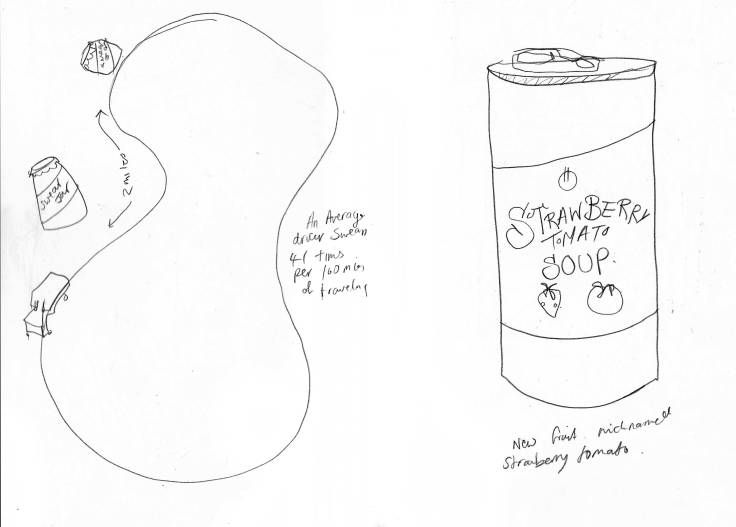 swear
jar
swear
Jar
2 miles
An Average
driver swears
41 times
per 100 miles
of traveling
STRAWBERRY
TOMATO
SOUP.
New fruit nicknamed
strawberry tomato.